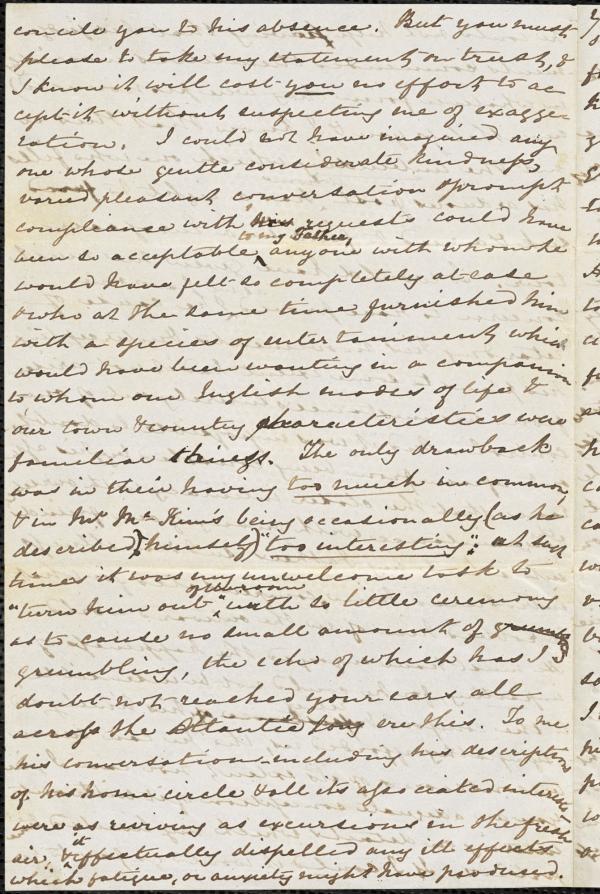 concile you to his absence. But you must
please to take my statement on trust, &
I know it will cost you no effort to ac
cept it without suspecting me of exagge
ration. I could not have imagined any
one whose gentle considerate kindness,
varied pleasant conversation & prompt
compliance with requests could have
to my Father,
been so acceptable, anyone with whom he
would have felt so completely at ease
& who at the same time furnished him
with a species of entertainment which
would have been wanting in a companion
to whom our English modes of life &
our town & country characteristics were
familiar things. The only drawback
was in their having too much in common,
& in Mr McKim's being occasionally (as he
described himself) "too interesting": at such
times it was my unwelcome task to
"turn him out" with so little ceremony
as to cause no small amount of
grumbling, the echo of which has I
doubt not reached your ears all
across the Atlantic long ere this. To me
his conversation including his description
of his home circle & all its associated interests
were as reviving as excursions in the fresh
air, & it effectually dispelled any ill effects
which fatigue, or anxiety might have produced.